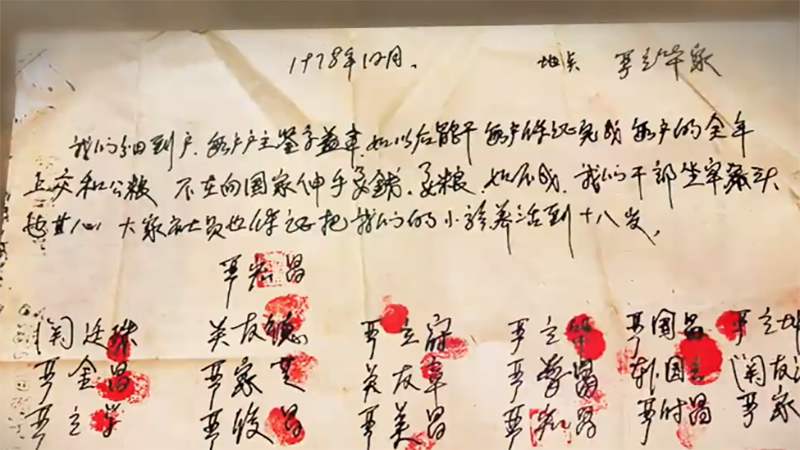 1978年12月. 地点 严立华家
我们分田到户. 每户户主签字盖章. 如以后能干 每户保证完成 每户的全年
上交和公粮 不在向国家伸手要錢. 要粮. 如不成. 我们干部坐牢殺头
也甘心. 大家社员也保证把我们的小孩养活到十八岁.
严宏昌
关廷珠 关友德 严立符 严立华 严国昌 严立坤
严金昌 严家芝 关友章 严学昌 韩国云 关友江
严立学 严俊昌 严美昌 严宏昌 严付昌 严家